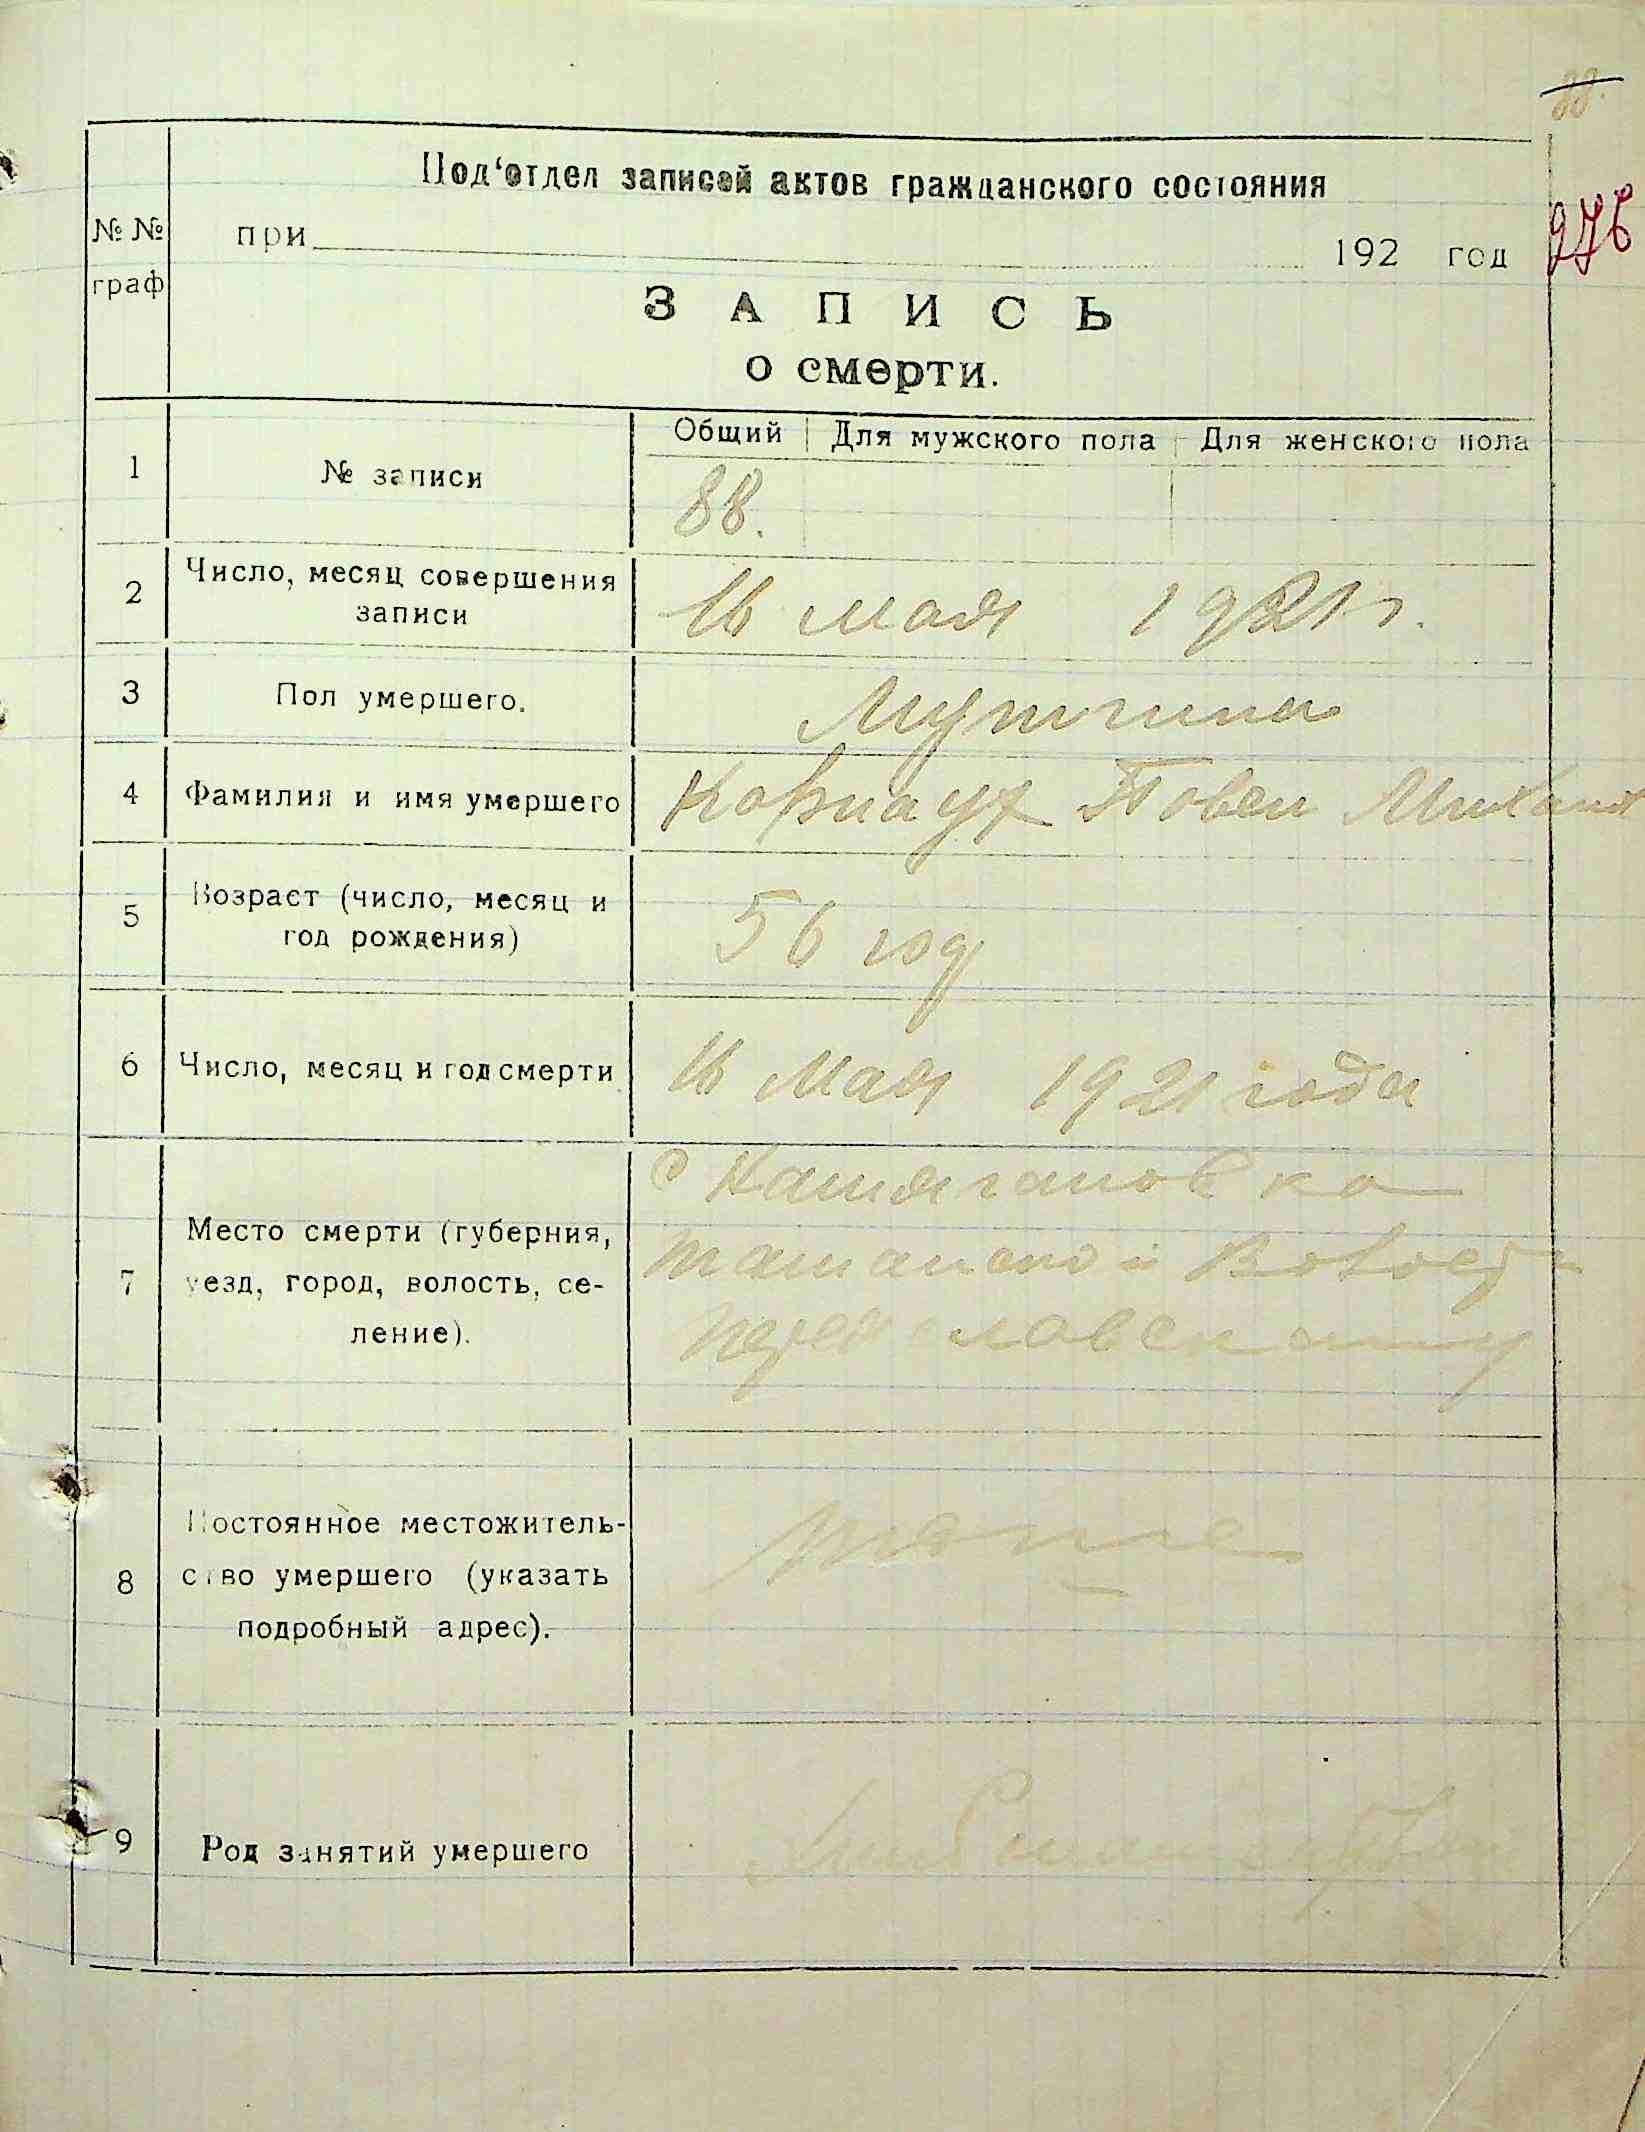 88.
276
Под‘отдел записей актов гражданского состояния
№ №
граф
при 192 год
ЗАПИСЬ
о смерти.
Общий Для мужского пола Для женского пола
1 № записи 88.
2 Число, месяц совершения
записи
16 мая 1921 г.
3 Пол умершего. Мущина
4 Фамилия и имя умершего Корнаух Повел Михаил
5 Возраст (число, месяц и
год рождения)
56 год
6 Число, месяц и год смерти 16 Мая 1921 года
7 Место смерти (губерния,
уезд, город, волость, се-
ление).
с
Ташанской Волости
8 Постоянное местожитель-
ство умершего (указать
подробный адрес).
9 Род занятий умершего